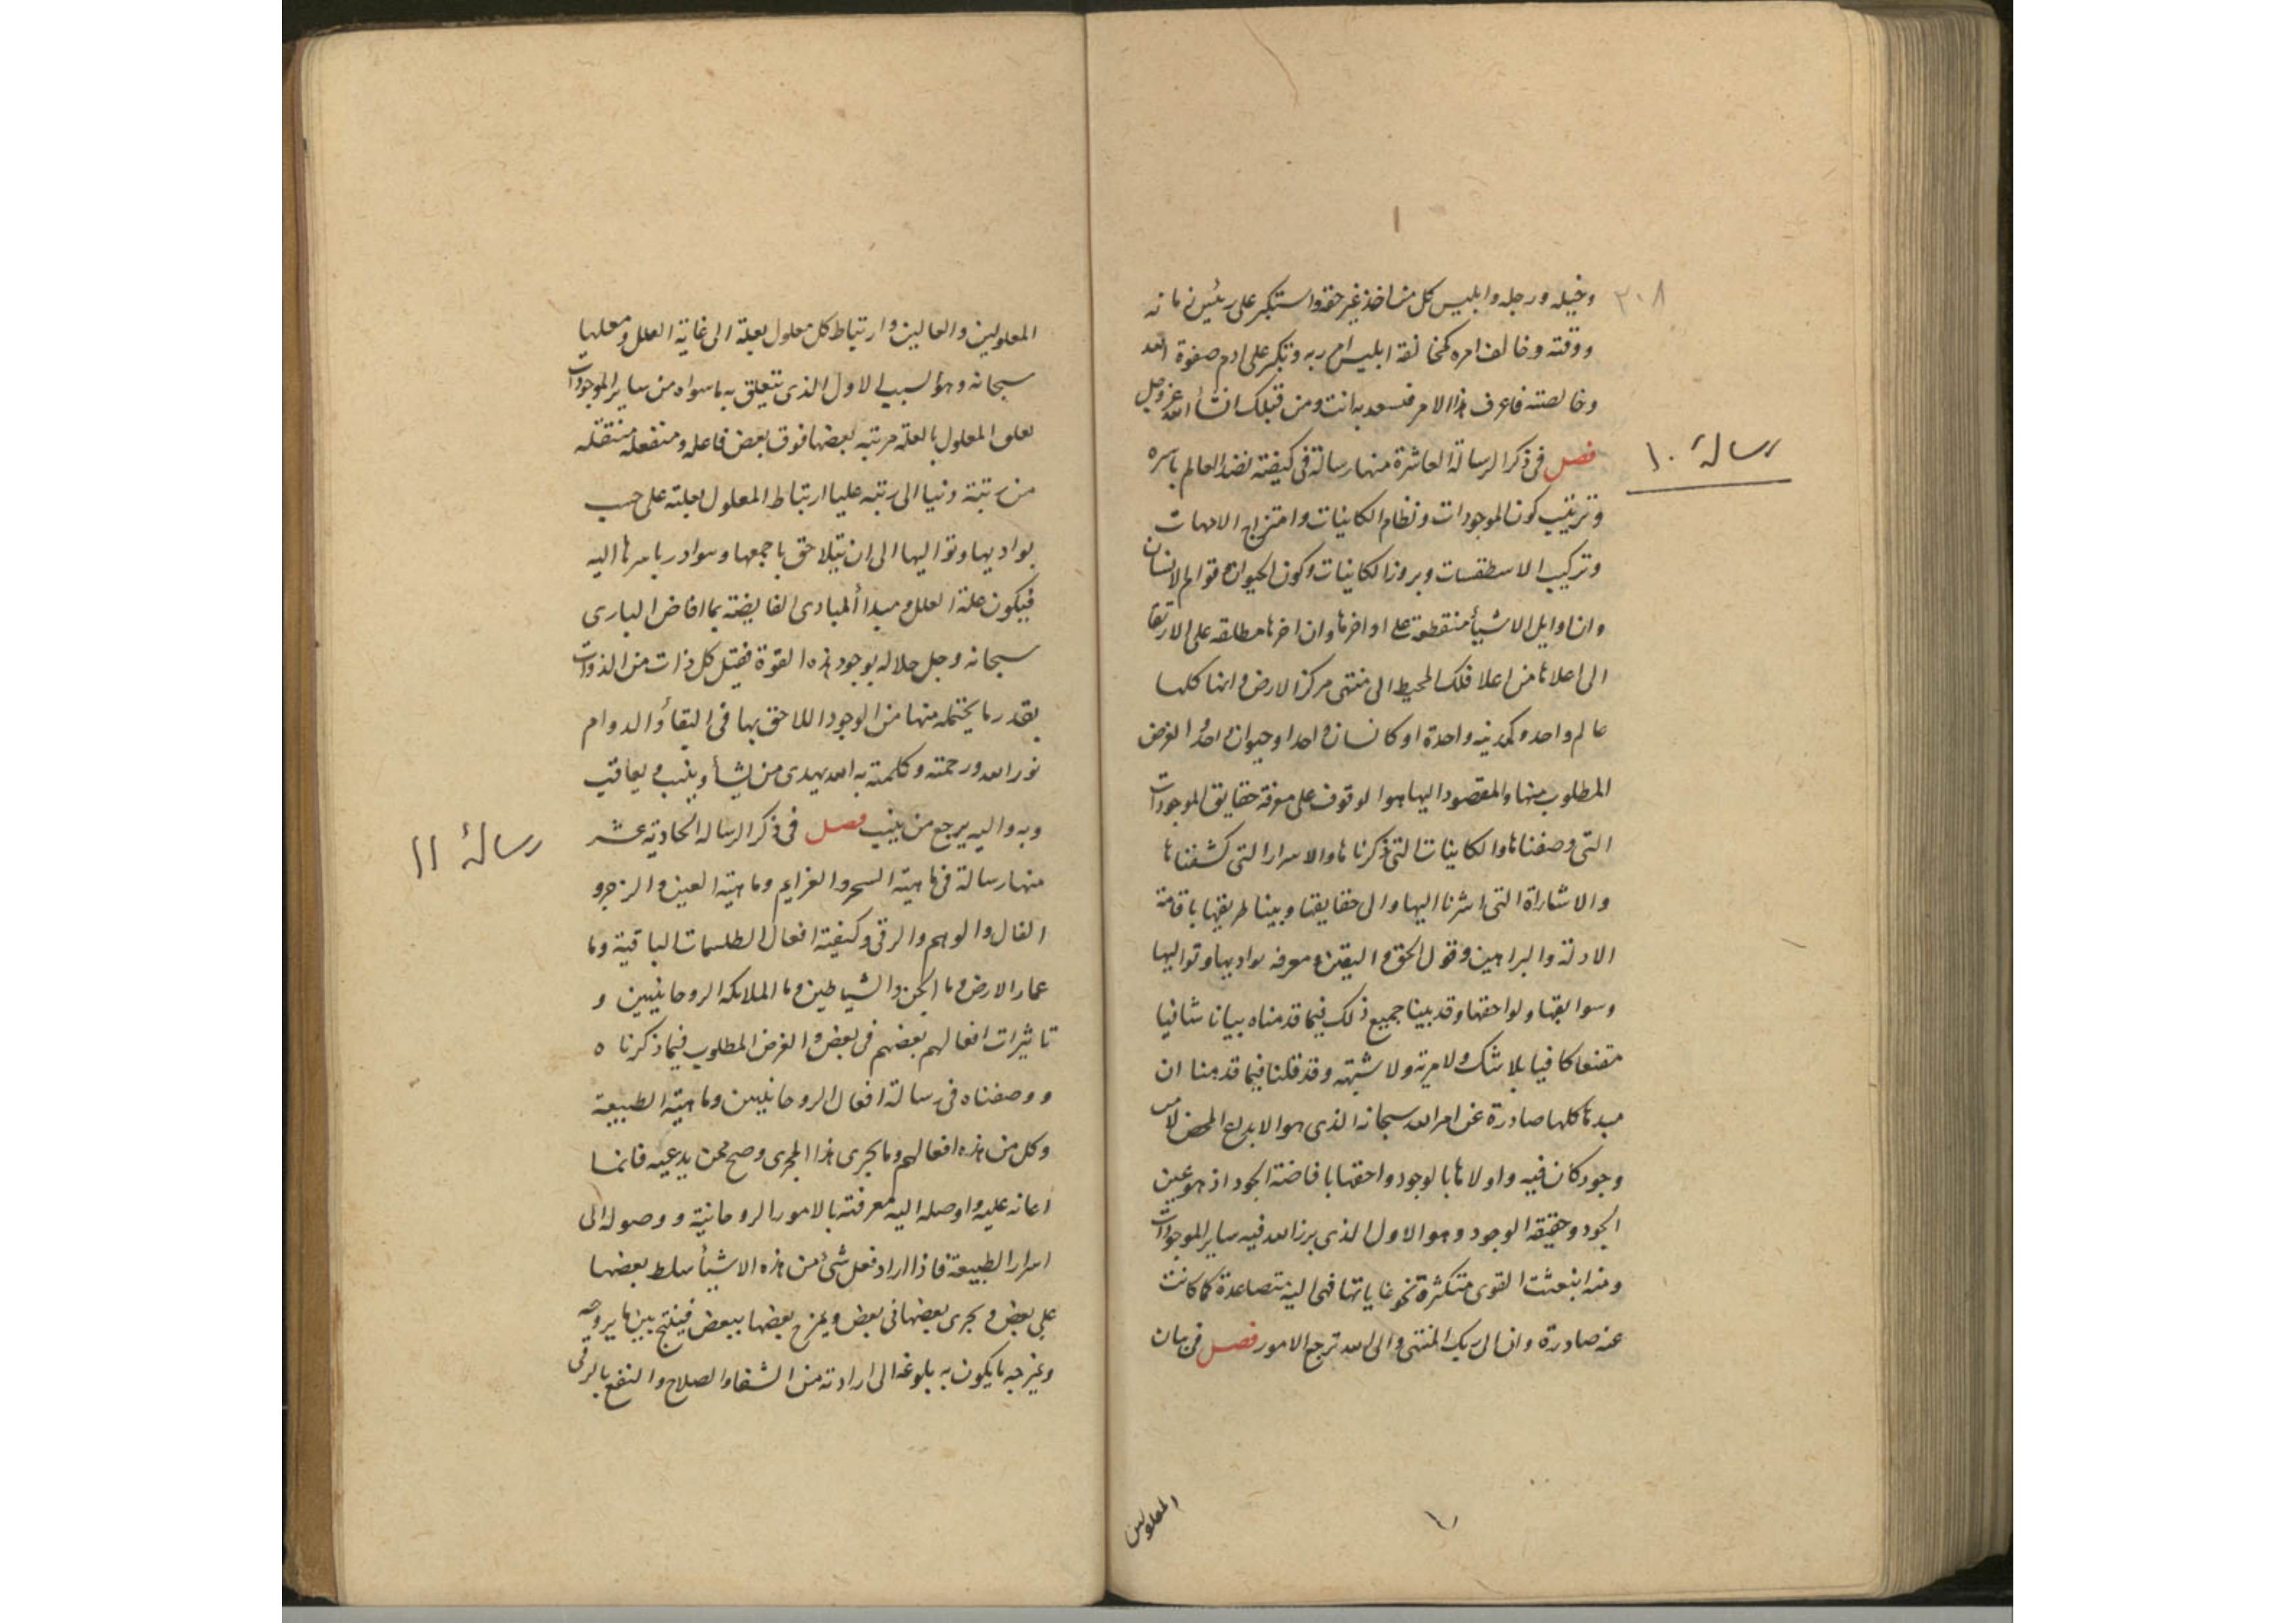 ٣٠٨
وخيله ورجله وابليس كل من اخذ غير حقه واستكبر على رئيس زمانه
ووقته وخالف امره كمخالفة ابليس امر ربه وتكبر على ادم صفوة الله
وخالصته فاعرف هذا الامر فتسعد به انت ومن قبلك انشأ الله عز وجل
رسالة ١٠
فصل فى ذكر الرسالة العاشرة منها رسالة فى كيفية نضد العالم باسره
وترتيب كون الموجودات ونظام الكاينات وامتزاج الامهات
وتركيب الاسطقسات وبروز الكاينات وكون الحيوان وقوام الانسان
وان اوايل الاشيأ منقطعة على اواخرها وان اخرها مطلقه على الارتقا
الى اعلاها من اعلا فلك المحيط الى منتهى مركز الارض وانها كلها
عالم واحد وكمدينه واحدة او كانسان واحد او حيوان واحد والغرض
المطلوب منها والمقصود اليها هو الوقوف على معرفة حقايق الموجودات
التى وصفناها والكاينات التى ذكرناها والاسرار التى كشفناها
والاشاراة التى اشرنا اليها وال حقايقها وبينا طريقها باقامة
الادلة والبراهين وقول الحق واليقين ومعرفه بواديها وتواليها
وسوابقها ولواحقها وقد بينا جميع ذلك فيما قدمناه بيانا شافيا
مقنعا كافيا بلا شك ولا مرية ولا شبهة وقد قلنا فيما قدمنا ان
مبدها كلها صادرة عن امر الله سبحانه الذى هو الابداع المحض
وجود كان فيه واولاها بالوجود واحقها بافاضة الجود اذ هو عين
الجود وحقيقه الوجود وهو الاول الذى برز الله فيه ساير الموجودات
ومنه انبعثت القوى متكثرة نحو غاياتها فهى اليه متصاعدة كما كانت
عنه صادرة وان الى ربك المنتهى والى الله ترجع الامور فصل فى بيان
المعلولين
المعلولين والعالين وارتباط كل معلول بعلة الى غاية العلل ومعلها
سبحانه وهو السبب الاول الذى يتعلق به ما سواه من ساير الموجودات
تعلق المعلول بالعلة مرتبه بعضها فوق بعض فاعله ومنفعله منتقله
من رتبة دنيا الى رتبه عليا ارتباط المعلول بعلته على حسب
بواديها وتواليها الى ان يتلاحق باجمعها وسوادر باسرها اليه
فيكون علة العلل ومبدأ المبادى الفايضة بما افاض البارى
سبحانه وجل جلاله بوجود هذه القوة فيقبل كل ذات من الذوات
بقدر ما يحتمله منها من الوجود اللاحق بها فى البقأ والدوام
نور الله ورحمته وكلمته به الله يهدى من يشأ ويثيب ويعاقب
وبه واليه يرجع من ينيب فصل فى ذكر الرساله الحادية عشر
رسالة ١١
منها رسالة فى ماهية السحر والعزايم وماهية العين والزجر و
الفال والوهم والرقى وكيفية افعال الطلسمات الباقية وما
عمار الارض وما الجن والشياطين وما الملايكه الروحانيين و
تاثيرات افعالهم بعضهم فى بعض والغرض المطلوب فيما ذكرنا ه
ووصفناه فى رسالة افعال الروحانيين وماهية الطبيعة
وكل من هذه افعالهم وما يجرى هذا المجرى وصح ممن يدعيه فانما
اعانه عليه واوصله اليه معرفته بالامور الروحانية ووصوله الى
اسرار الطبيعة فاذا اراد فعل شئ من هذه الاشيأ سلط بعضها
على بعض ويجرى بعضها فى بعض ويمزج بعضها ببعض فينتج بينها ما يروجه
ويمزجه ما يكون به بلوغه الى ارادته من الشفا والصلاح والنفع بالرقى